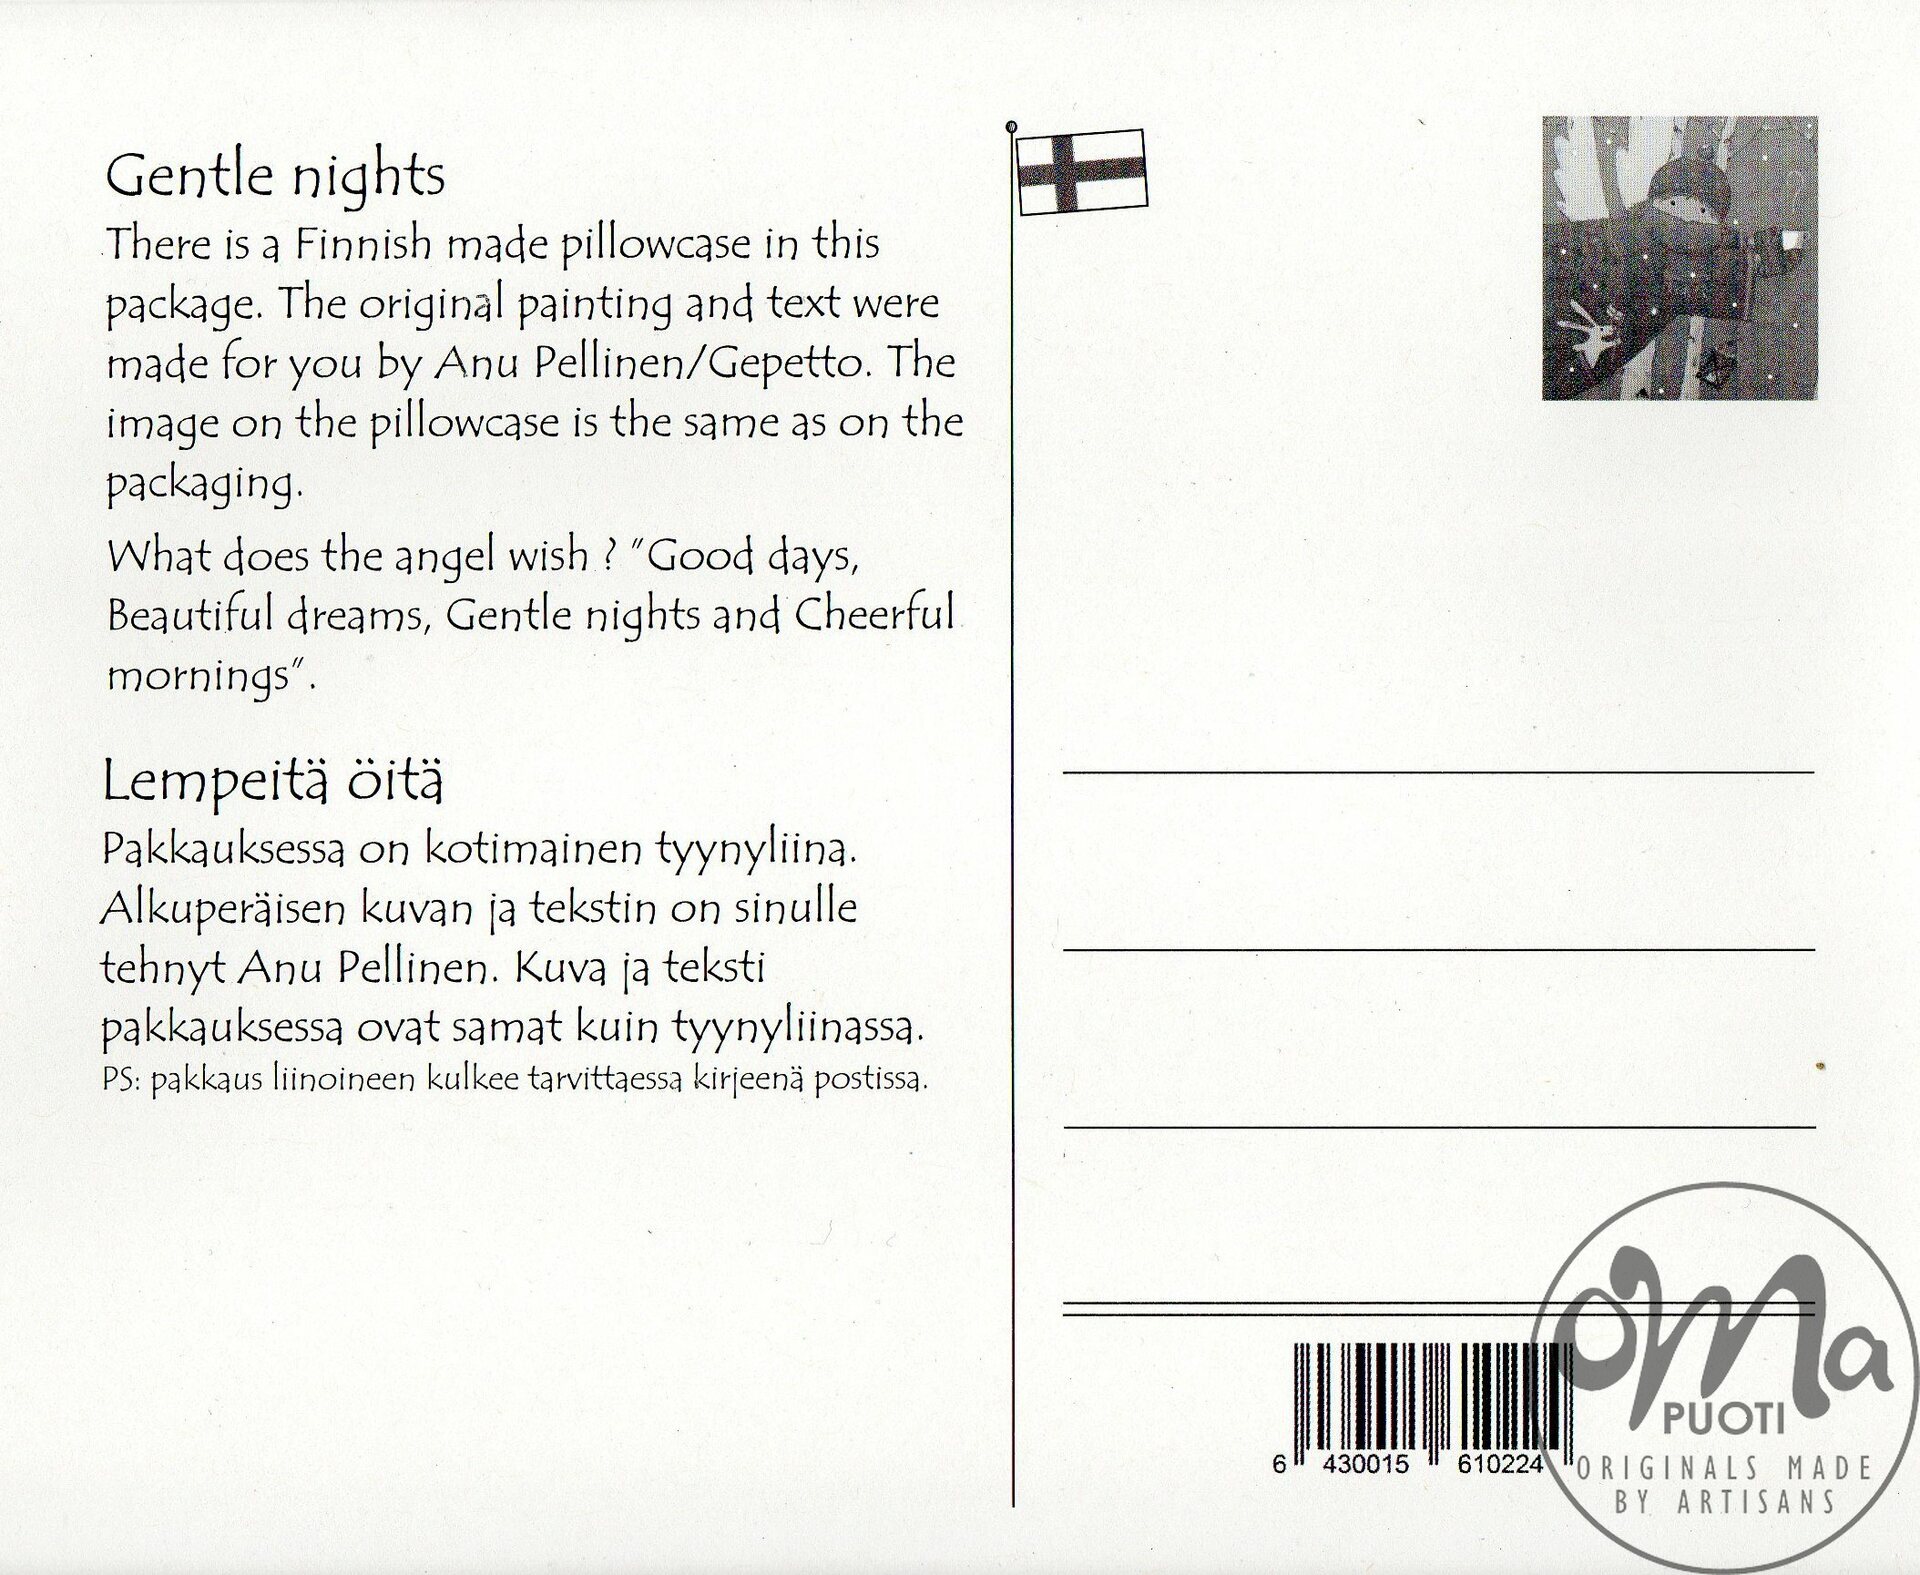 Gentle nights
There is a Finnish made pillowcase in this
package. The original painting and text were
made for you by Anu Pellinen/Gepetto. The
image on the pillowcase is the same as on the
packaging.
What does the angel wish ? "Good days,
Beautiful dreams, Gentle nights and Cheerful
mornings".
Lempeitä öitä
Pakkauksessa on kotimainen tyynyliina.
Alkuperäisen kuvan ja tekstin on sinulle
tehnyt Anu Pellinen. Kuva ja teksti
pakkauksessa ovat samat kuin tyynyliinassa.
PS: pakkaus liinoineen kulkee tarvittaessa kirjeenä postissa.
6 430015 610224
oma
PUOTI
ORIGINALS MADE
BY ARTISANS